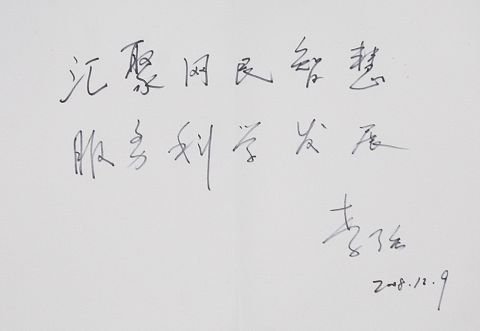 汇聚网民智慧
服务科学发展
李强
2008.12.9